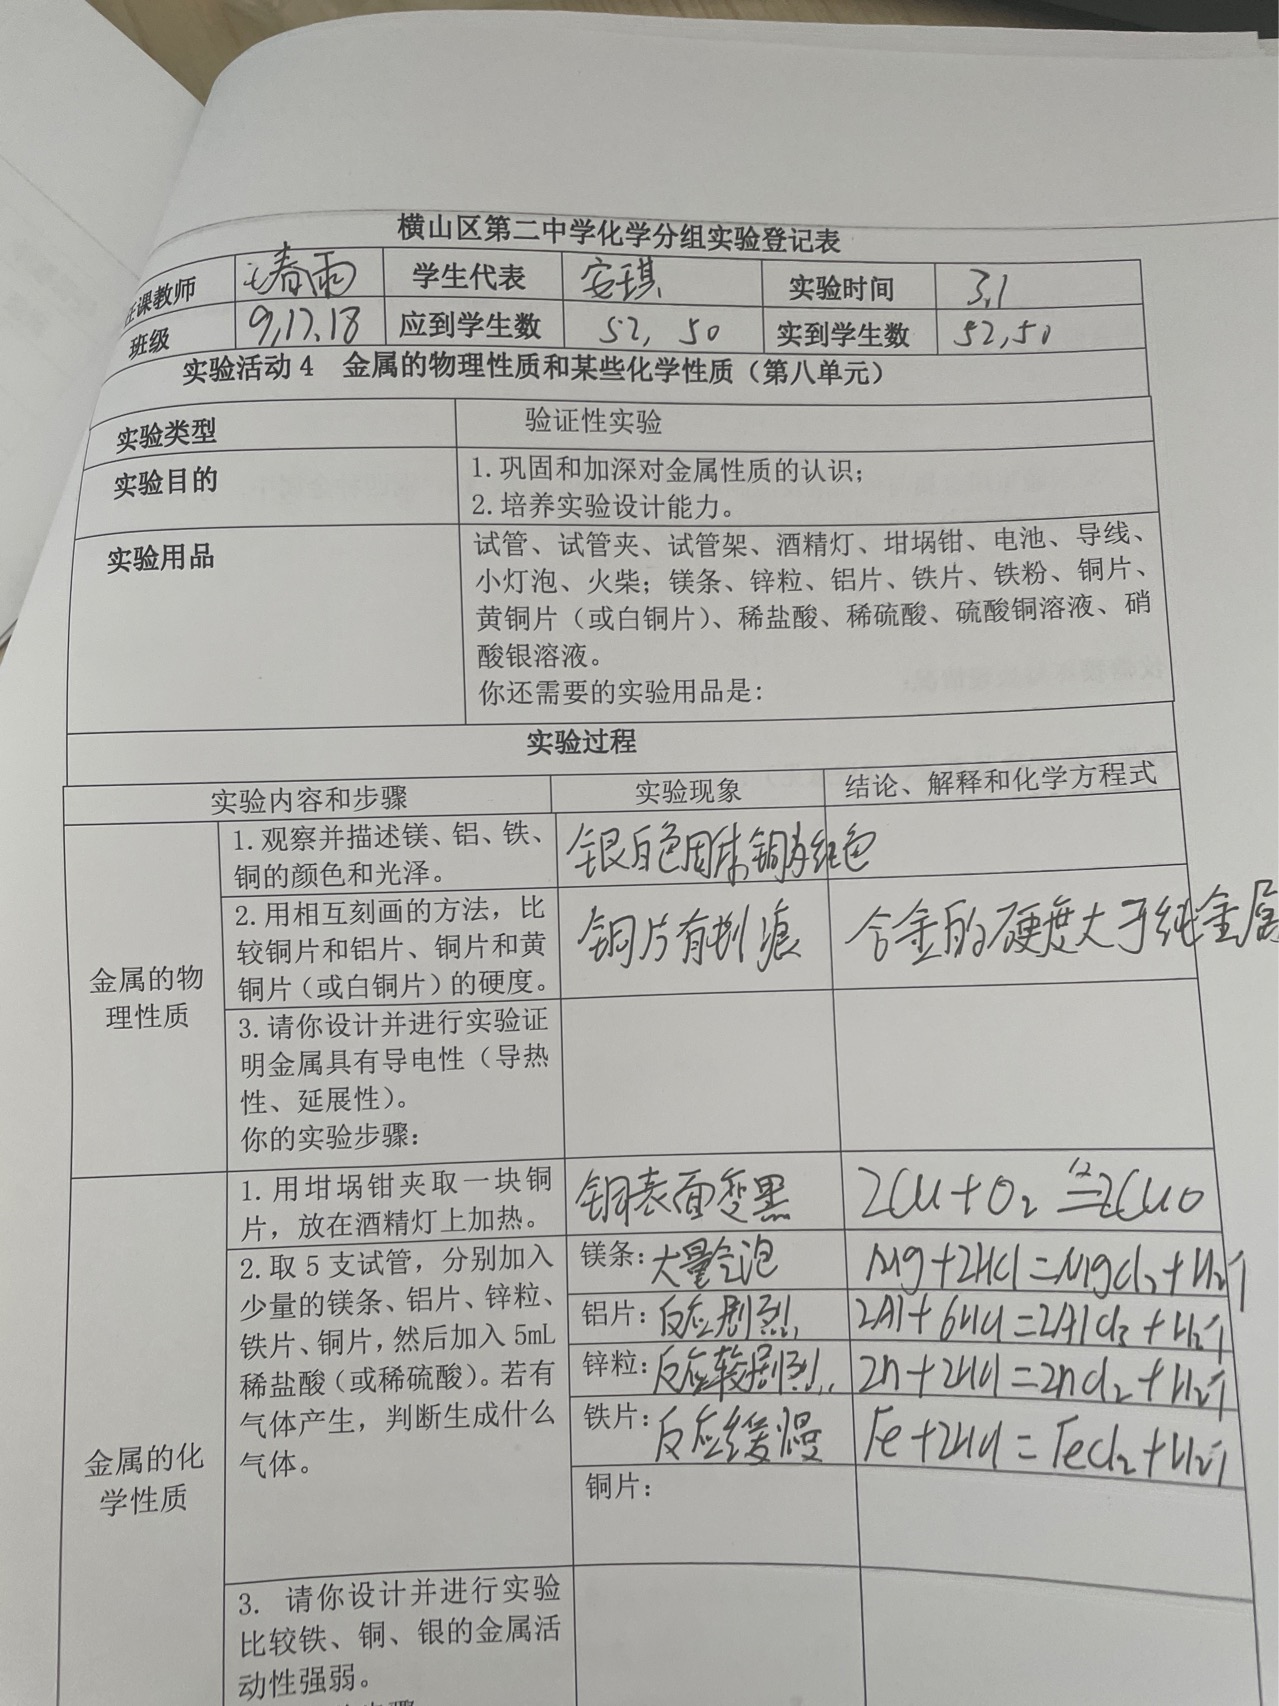 横山区第二中学化学分组实验登记表
任课教师 春雨 学生代表 安琪 实验时间 3.1
班级 9,17.18 应到学生数 52, 50 实到学生数 52,50
实验活动4 金属的物理性质和某些化学性质（第八单元）
实验类型 验证性实验
实验目的 1.巩固和加深对金属性质的认识；
2.培养实验设计能力。
实验用品 试管、试管夹、试管架、酒精灯、坩埚钳、电池、导线、
小灯泡、火柴；镁条、锌粒、铝片、铁片、铁粉、铜片、
黄铜片（或白铜片）、稀盐酸、稀硫酸、硫酸铜溶液、硝
酸银溶液。
你还需要的实验用品是：
实验过程
实验内容和步骤 实验现象 结论、解释和化学方程式
金属的物
理性质
1.观察并描述镁、铝、铁、
铜的颜色和光泽。
银白色固体,铜为红色
2.用相互刻画的方法，比
较铜片和铝片、铜片和黄
铜片（或白铜片）的硬度。
铜片有划痕
合金的硬度大于纯金属
3.请你设计并进行实验证
明金属具有导电性（导热
性、延展性）。
你的实验步骤：
金属的化
学性质
1.用坩埚钳夹取一块铜
片，放在酒精灯上加热。
铜表面变黑
2Cu+O₂ ≜ 2CuO
2.取5支试管，分别加入
少量的镁条、铝片、锌粒、
铁片、铜片，然后加入5mL
稀盐酸（或稀硫酸）。若有
气体产生，判断生成什么
气体。
镁条：大量气泡
Mg+2HCl=MgCl₂+H₂↑
铝片：反应剧烈
2Al+6HCl=2AlCl₃+H₂↑
锌粒：反应较剧烈
Zn+2HCl=ZnCl₂+H₂↑
铁片：反应缓慢
Fe+2HCl=FeCl₂+H₂↑
铜片：
3. 请你设计并进行实验
比较铁、铜、银的金属活
动性强弱。